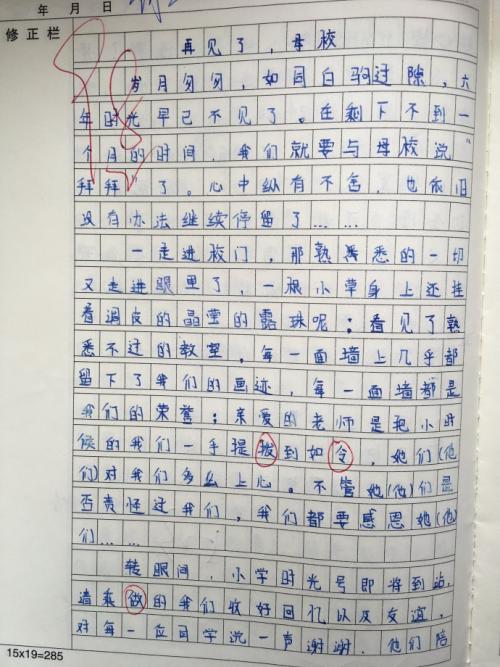 年 月 日
修正栏
再见了，母校
岁月匆匆，如同白驹过隙，六
年时光早已不见了。在剩下不到一
个月的时间，我们就要与母校说“
拜拜”了。心中纵有不舍，也依旧
没有办法继续停留了……
一走进校门，那熟悉的一切
又走进眼里了，一根小草身上还挂
着调皮的晶莹的露珠呢；看见了熟
悉不过的教室，每一面墙上几乎都
留下了我们的画迹，每一面墙都是
我们的荣誉；亲爱的老师是把小时
候的我们一手提拨到如令，她们(他
们)对我们多么上心。不管她(他)们是
否责怪过我们，我们都要感恩她(他)
们……
转眼间，小学时光号即将到站，
请乘做的我们收好回忆以及友谊，
对每一位同学说一声谢谢．他们陪
15x19=285